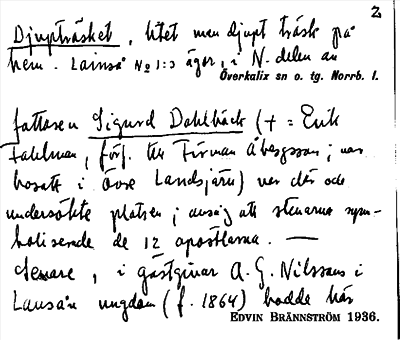 2
Djupträsket, litet men djupt träsk på
hem. Lainså No 1:3 ägor, i N. delen av
Överkalix sn o. tg. Norrb. l.
fattaren Sigurd Dahlbäck (+ = Erik
Fahlman, förf. till Firman Åbergsson; var
bosatt i Övre Landsjärv) var där och
undersökte platsen; ansåg att stenarna sym-
boliserade de 12 apostlarna. —
Senare, i gästgivar A. G. Nilssons i
Lansån ungdom (f. 1864) hade här
EDVIN BRÄNNSTRÖM 1936.